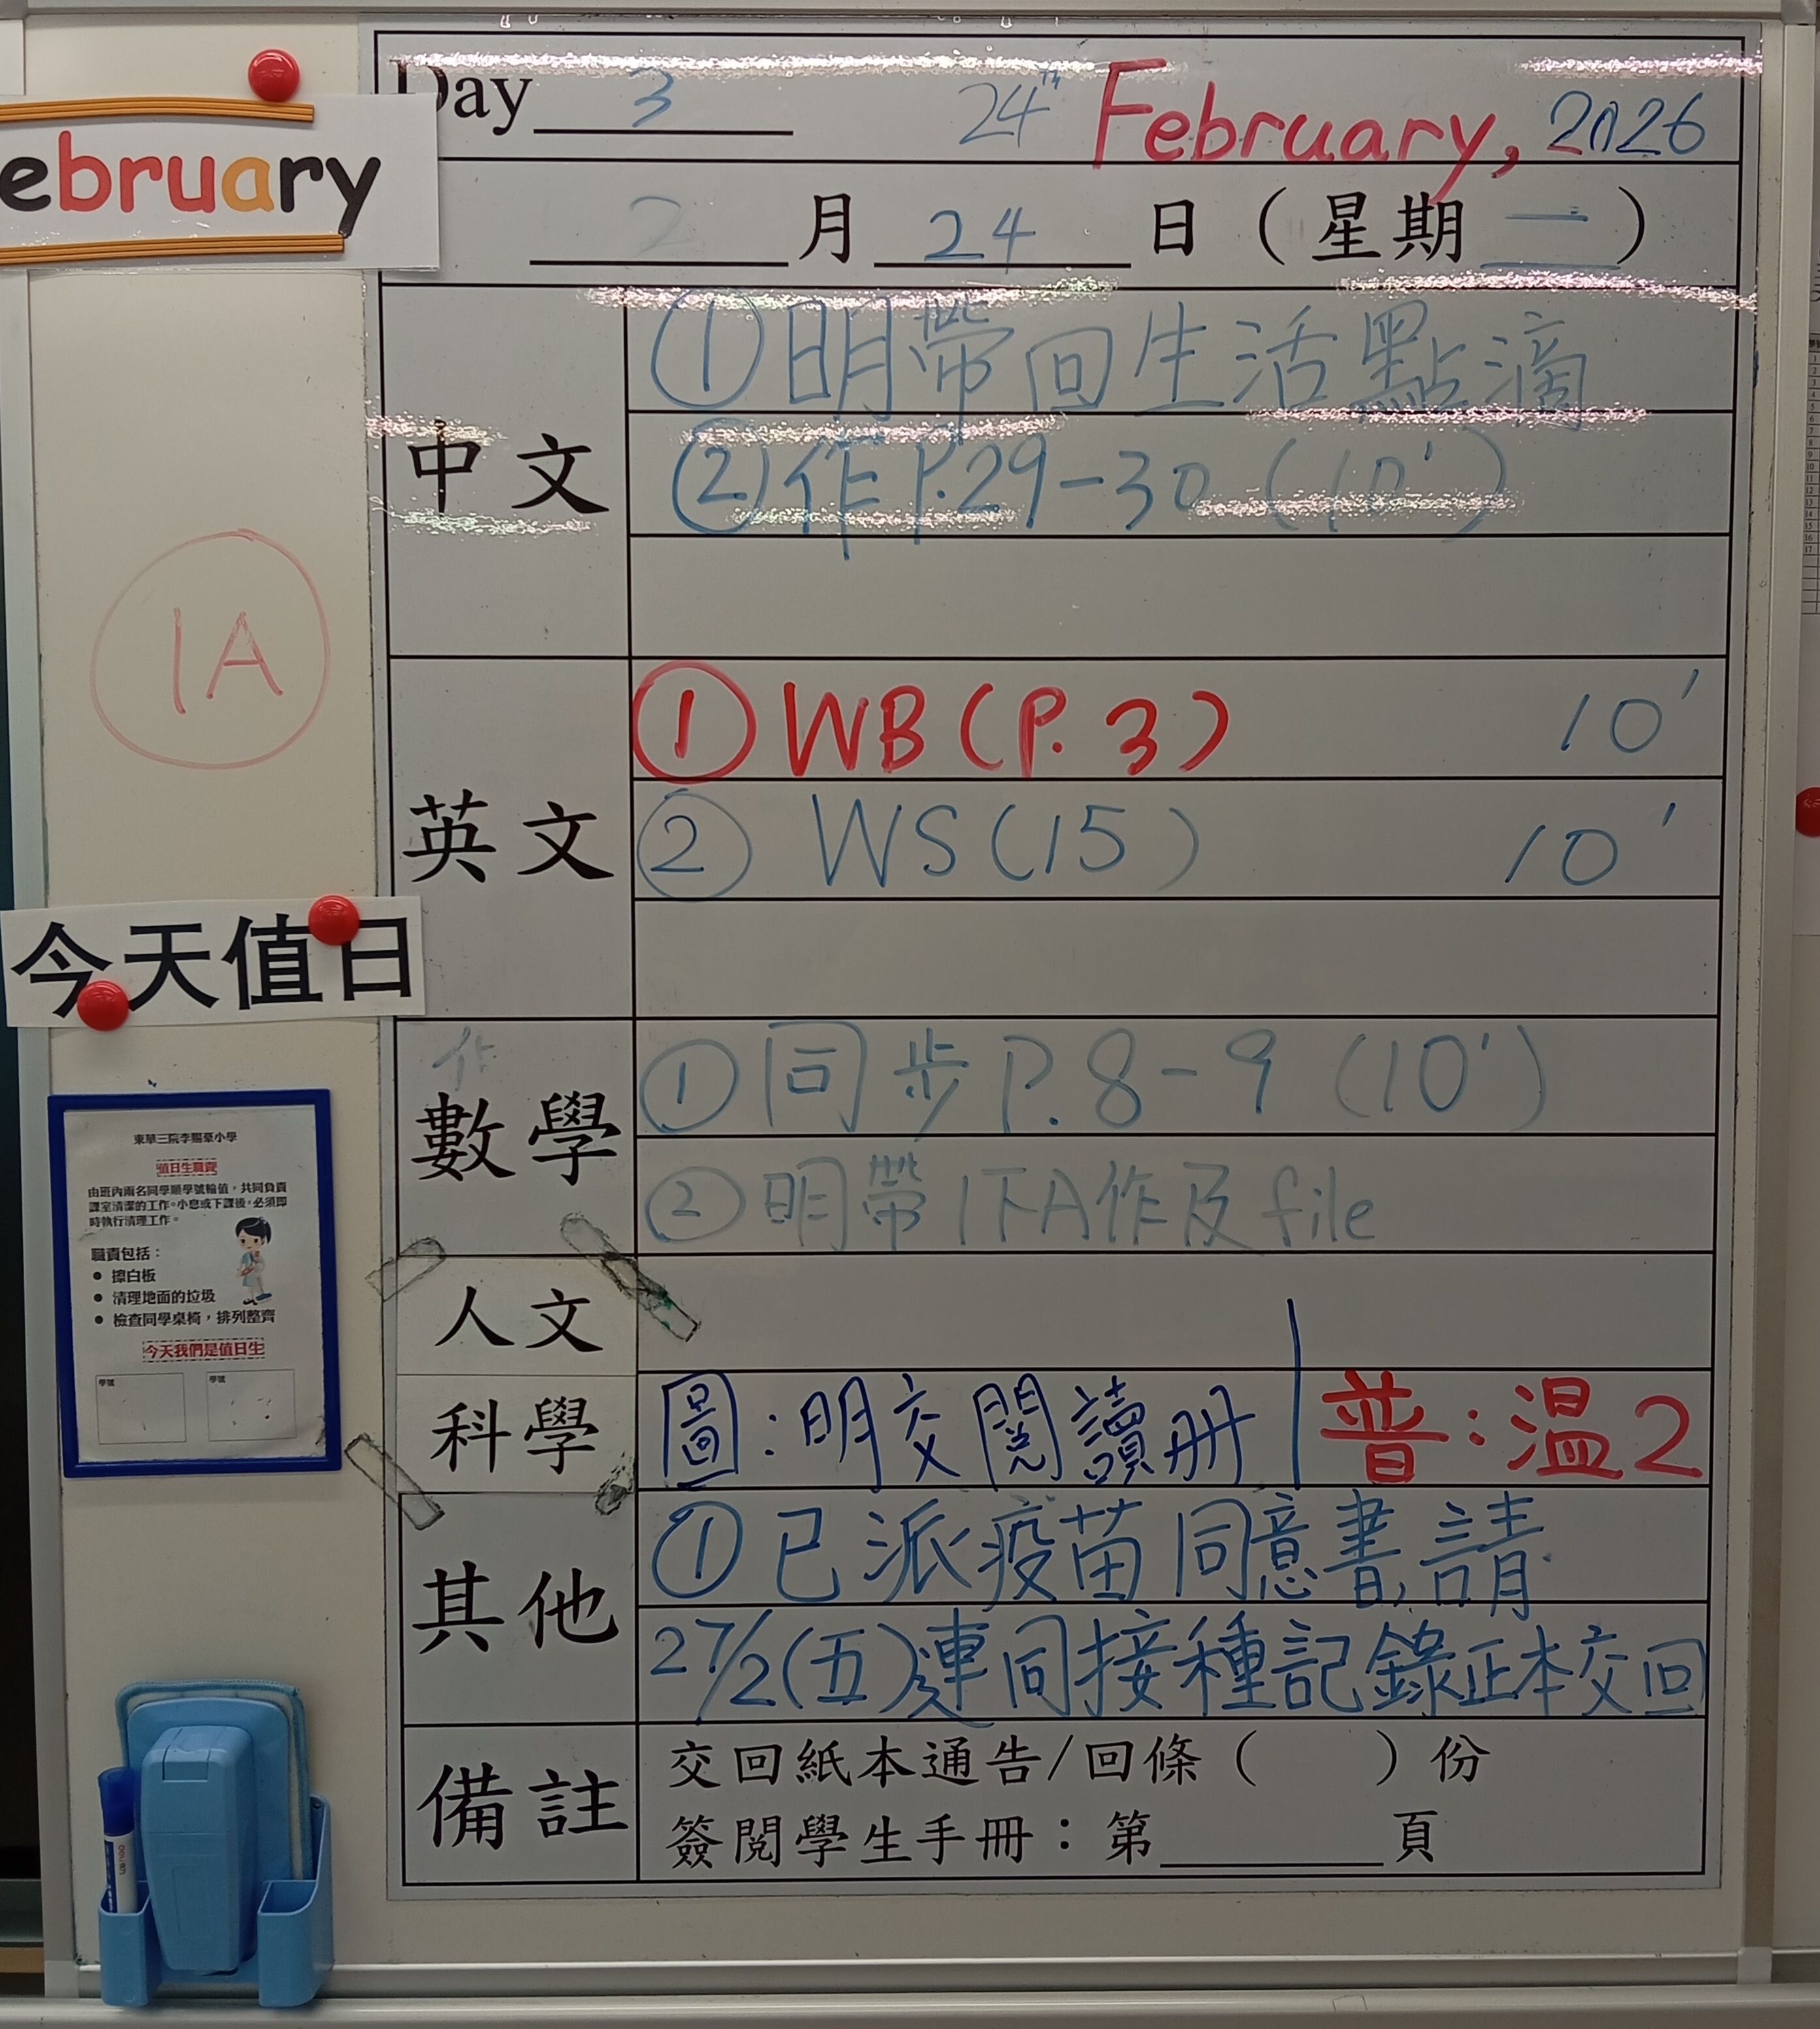 Day 3 24th February, 2026
ebruary
2 月 24 日 ( 星期 一 )
中文
① 明帶回生活點滴
② 作 P.29-30 (10')
1A
英文
① WB (P. 3) 10'
② WS (15) 10'
今天值日
作
數學
① 同步 P. 8-9 (10')
② 明帶 1下A作及 file
人文
科學
圖:明交閱讀册 | 普:温2
其他
① 已派疫苗同意書,請
27/2(五)連同接種記錄正本交回
備註
交回紙本通告/回條( )份
簽閱學生手冊:第______頁
東華三院李賜豪小學
值日生職責
由班內兩名同學順學號輪值,共同負責
課室清潔的工作。小息或下課後,必須即
時執行清理工作。
職責包括:
● 擦白板
● 清理地面的垃圾
● 檢查同學桌椅,排列整齊
今天我們是值日生
學號 學號